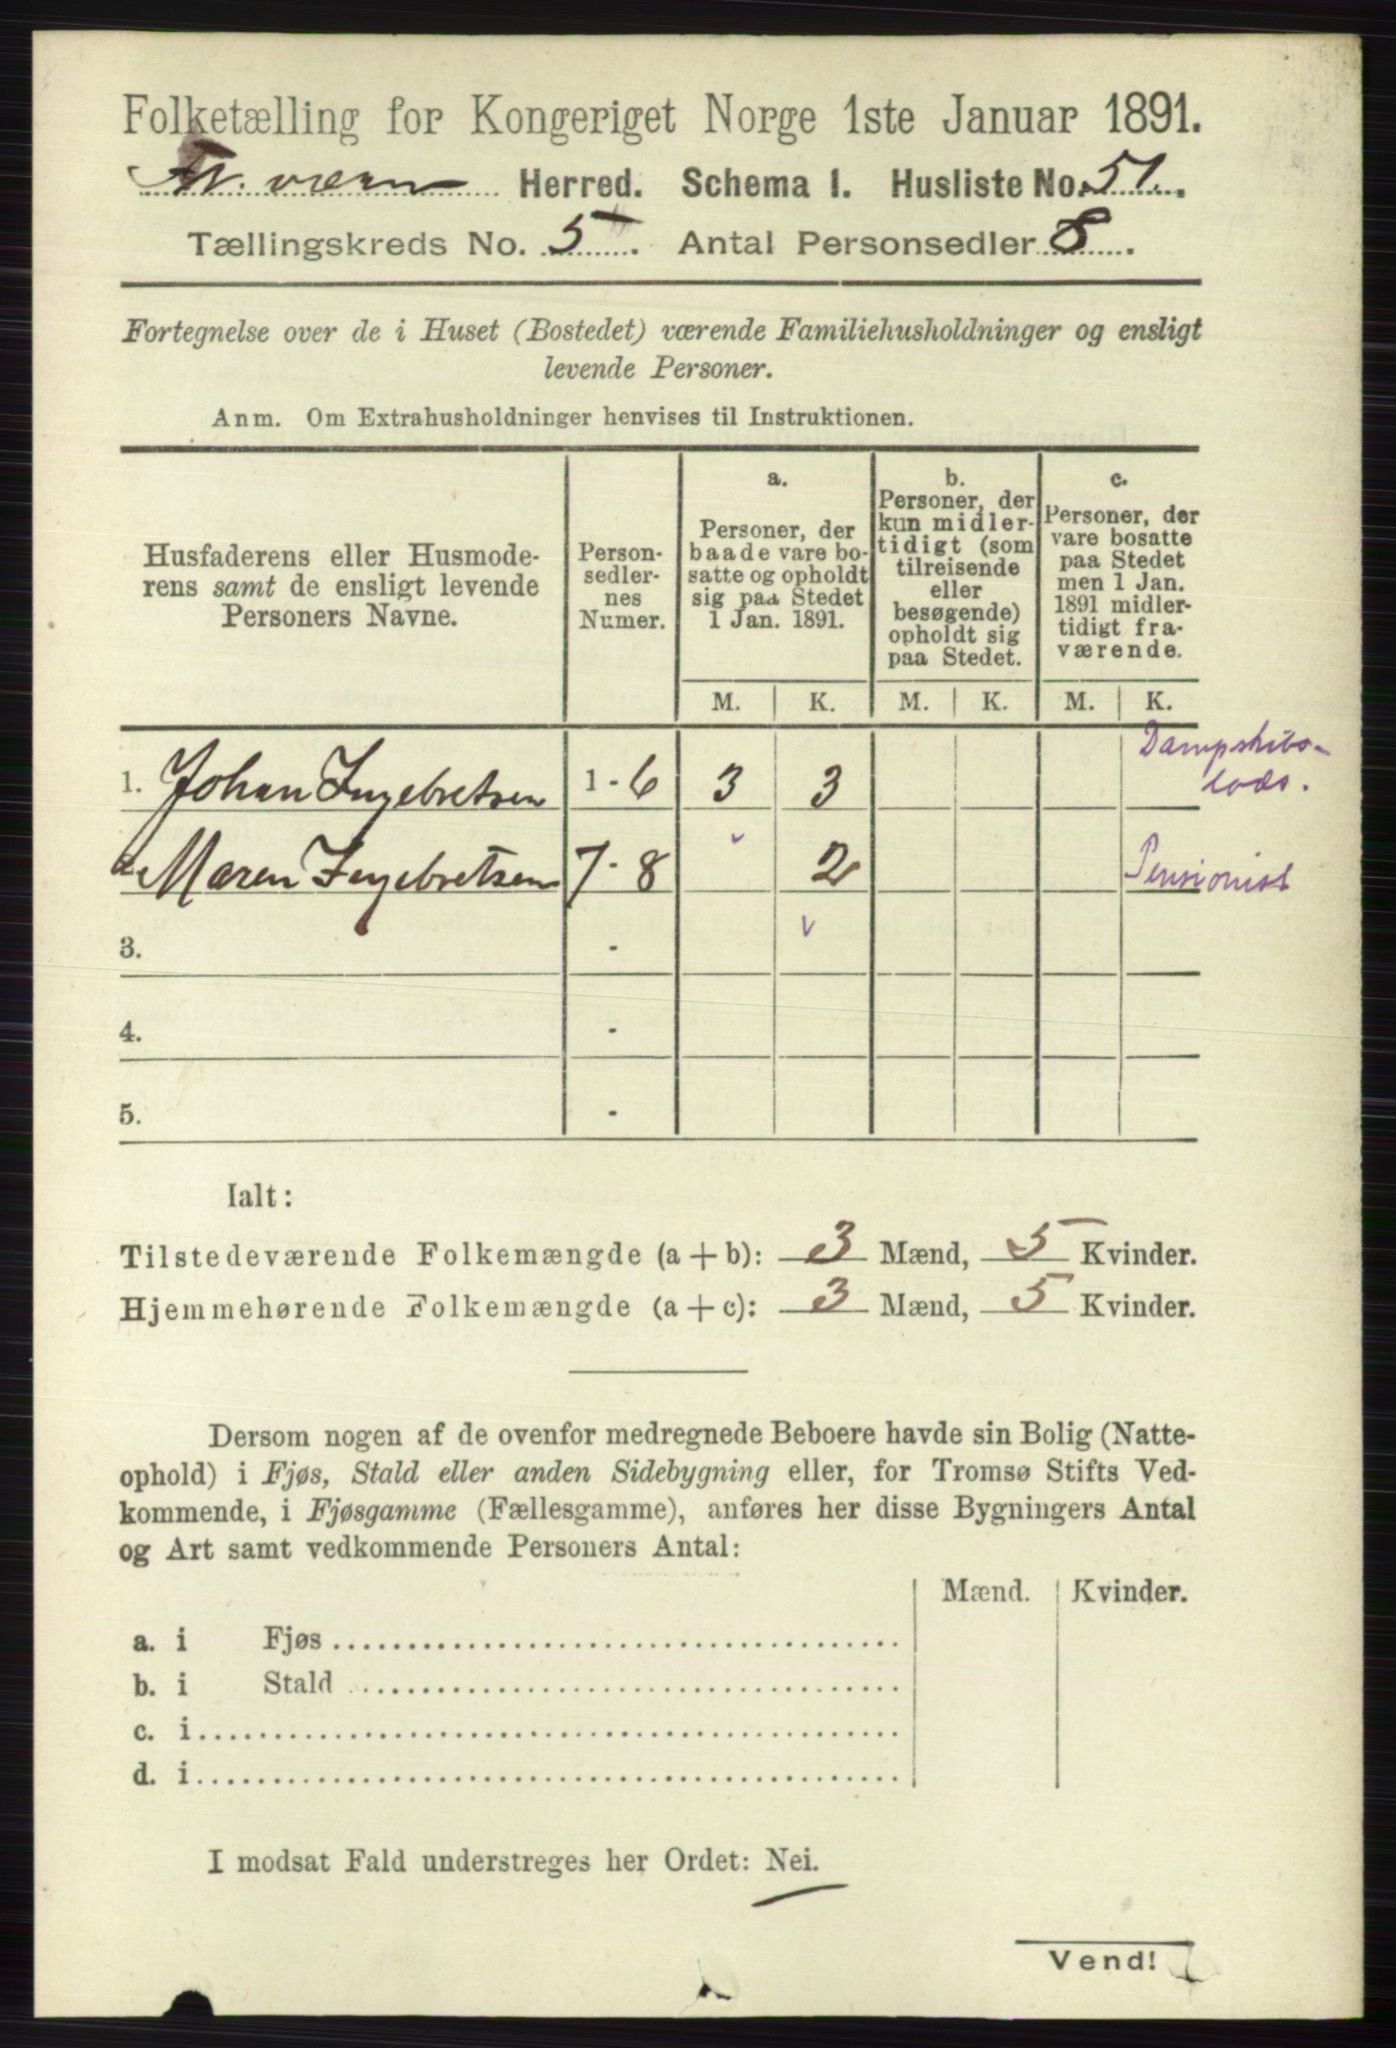 Folketælling for Kongeriget Norge 1ste Januar 1891.
Fr. værn Herred. Schema 1. Husliste No. 51.
Tællingskreds No. 5. Antal Personsedler 8.
Fortegnelse over de i Huset (Bostedet) værende Familiehusholdninger og ensligt
levende Personer.
Anm. Om Extrahusholdninger henvises til Instruktionen.
Husfaderens eller Husmode-
rens samt de ensligt levende
Personers Navne.
Person-
sedler-
nes
Numer.
a.
Personer, der
baade vare bo-
satte og opholdt
sig paa Stedet
1 Jan. 1891.
b.
Personer, der
kun midler-
tidigt (som
tilreisende
eller
besøgende)
opholdt sig
paa Stedet.
c.
Personer, der
vare bosatte
paa Stedet
men 1 Jan.
1891 midler-
tidigt fra-
værende.
M. K. M. K. M. K.
1. Johan Ingebretsen 1 - 6 3 3 Dampskibs-
lods.
2. Maren Ingebretsen 7 - 8 2 Pensionist
3. -
4. -
5. -
Ialt:
Tilstedeværende Folkemængde (a + b): 3 Mænd, 5 Kvinder.
Hjemmehørende Folkemængde (a + c): 3 Mænd, 5 Kvinder.
Dersom nogen af de ovenfor medregnede Beboere havde sin Bolig (Natte-
ophold) i Fjøs, Stald eller anden Sidebygning eller, for Tromsø Stifts Ved-
kommende, i Fjøsgamme (Fællesgamme), anføres her disse Bygningers Antal
og Art samt vedkommende Personers Antal:
Mænd. Kvinder.
a. i Fjøs
b. i Stald
c. i
d. i
I modsat Fald understreges her Ordet: Nei.
Vend!